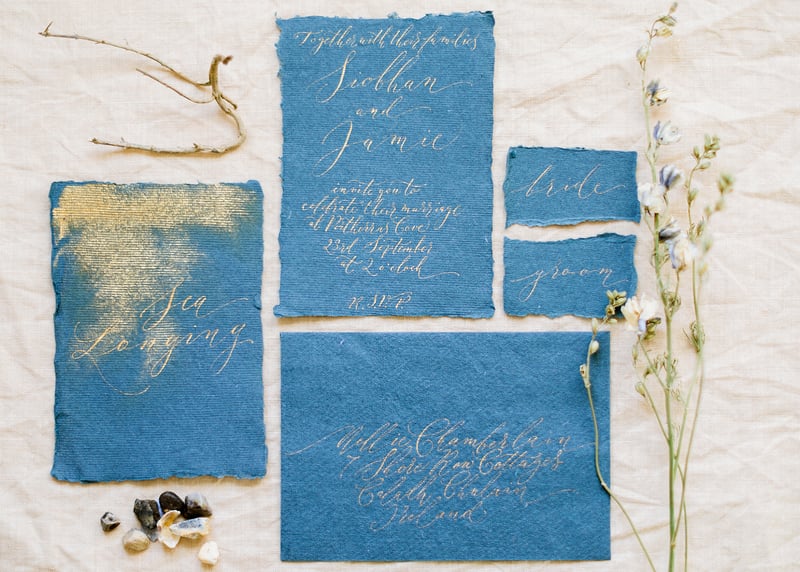 Together with their families
Siobhan
and
Jamie
invite you to
celebrate their marriage
at Polhurras Cove
23rd September
at 2 o'clock
R.S.V.P.
bride
groom
Sea
Longing
Mellie Chamberlain
7 Shore Row Cottages
Ireland